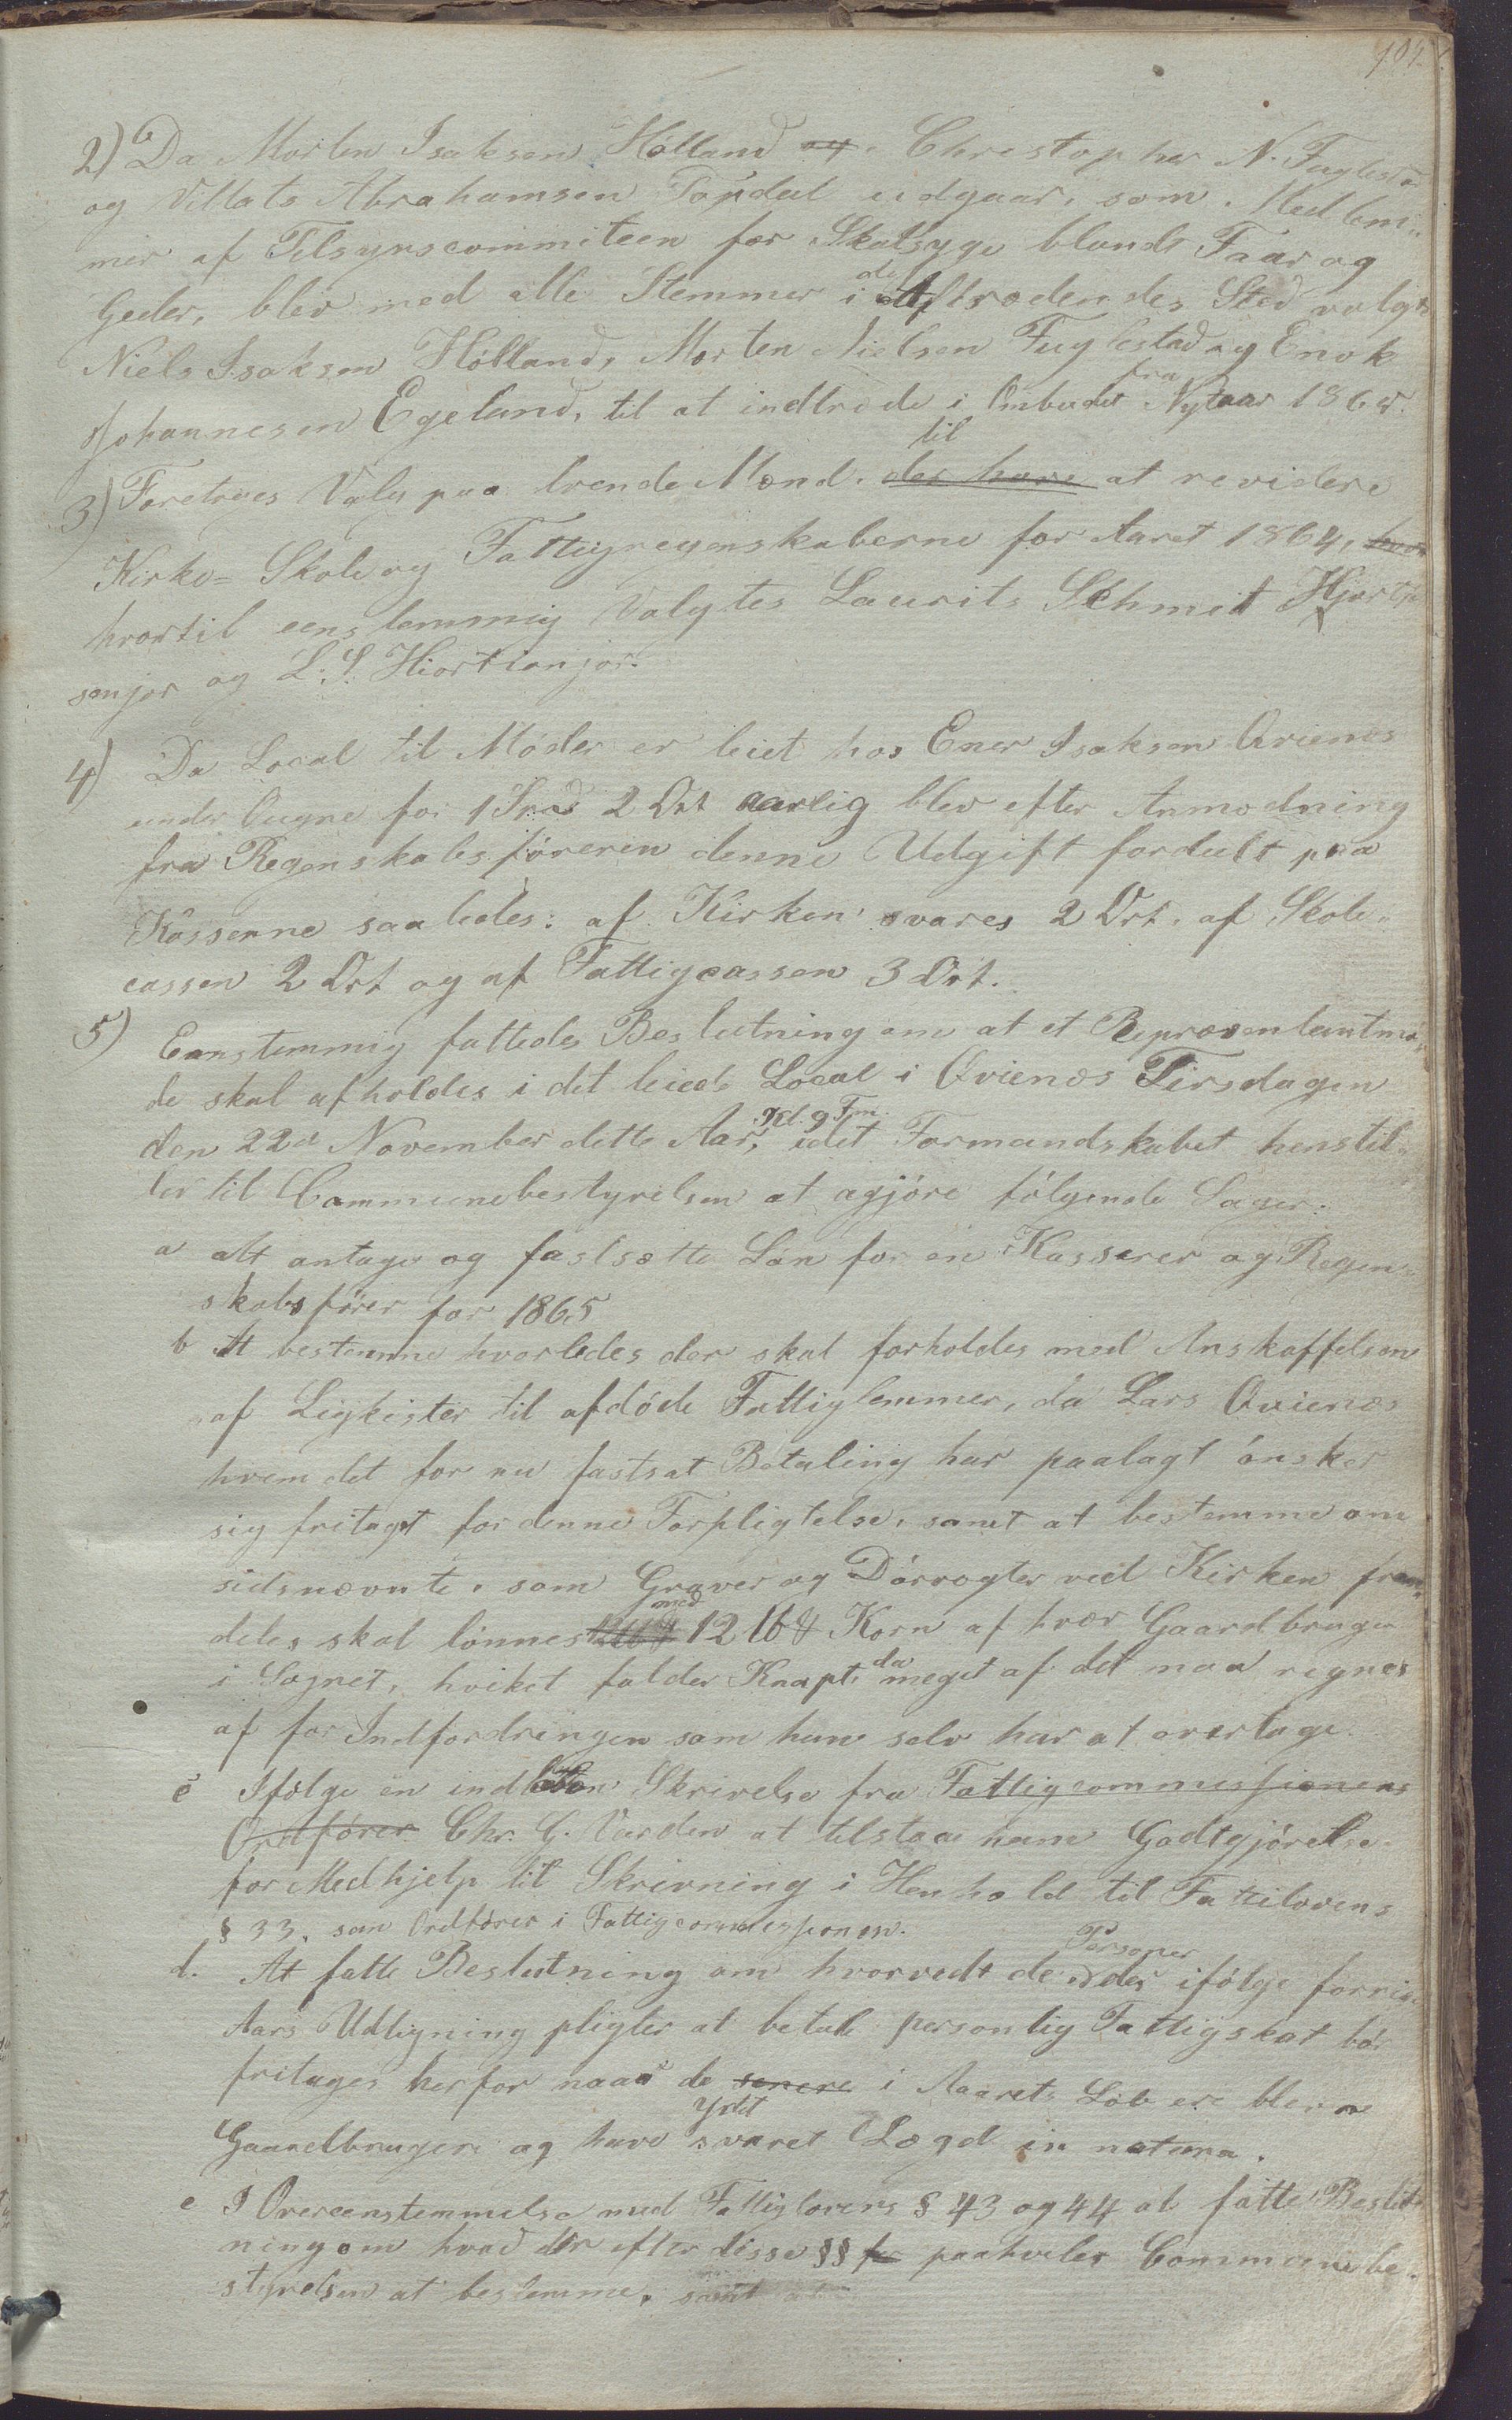 104.
2) Da Morten Isaksen Hølland og Christopher N. Fuglestad
og Villats Abrahamsen Tændal udgaar, som Medlem-
mer af Tilsynscommiteen for Skabsyge blandt Faar og
Geder, blev med alle Stemmer i de Aftrædendes Sted valgt
Niels Isaksen Hølland, Morten Nielsen Fuglestad og Enok
Johannesen Egeland, til at indtræde i Ombudet fra Nytaar 1865.
3) Foretoges Valg paa trende Mænd, der have til at revidere
Kirke- Skole og Fattigregenskaberne for Aaret 1864, hvor
hvortil eenstemmig valgtes Laurits Schmit Hjort
senjor og L. S. Hiort junjor.
4) Da Local til Møder er leiet hos Ener Isaksen Qvienes
under Ougne for 1 Spd 2 Ort aarlig blev efter Anmodning
fra Regenskabsføreren denne Udgift fordeelt paa
Kassenne saaledes: af Kirken svares 2 Ort, af Skole-
cassen 2 Ort og af Fattigcassen 3 Ort.
5) Eenstemmig fattedes Beslutning om at et Repræsentantmø-
de skal afholdes i det leiede Local i Qvienes Tirsdagen
den 22de November dette Aar, Kl. 9 Fm. idet Formandskabet henstil-
ler til Communebestyrelsen at agjøre følgende Sager:
a att antage og fastsætte Løn for en Kasserer og Regen-
skabsfører for 1865
b At bestemme hvorledes der skal forholdes med Anskaffelsen
af Ligkister til afdøde Fattiglemmer, da Lars Qvienes
hvem det for nu fastsat Betaling har paalagt ønsker
sig fritaget for denne Forpligtelse, samt at bestemme om
sidsnævnte, som Graver og Dørvogter ved Kirken frem-
deles skal lønnes med 12 lb Korn af hver Gaardbruger
i Sognet, hvilket falder Knapt, da meget af det maa regnes
af for Indfordringen som han selv har at overtage.
c Ifølge en indkommen Skrivelse fra Fattigcommissionens
Ordfører Chr. G. Varden at tilstaae ham Godtgjørelse
for Medhjelp til Skrivning i Henhold til Fattilovens
§ 33, som Ordfører i Fattigcommissionen.
d. At fatte Beslutning om hvorvidt de Personer der ifølge forrige
Aars Udligning pligter at betale personlig Fattigskat bør
fritages herfor naar de senere i Aarets Løb ere blevne
Gaardbrugere og have svaret ydet Lægd in natura.
e I Overeenstemmelse med Fattiglovens § 43 og 44 at fatte Beslut-
ning om hvad der efter disse §§ for paahviler Communebe-
styrelsen at bestemme, samt